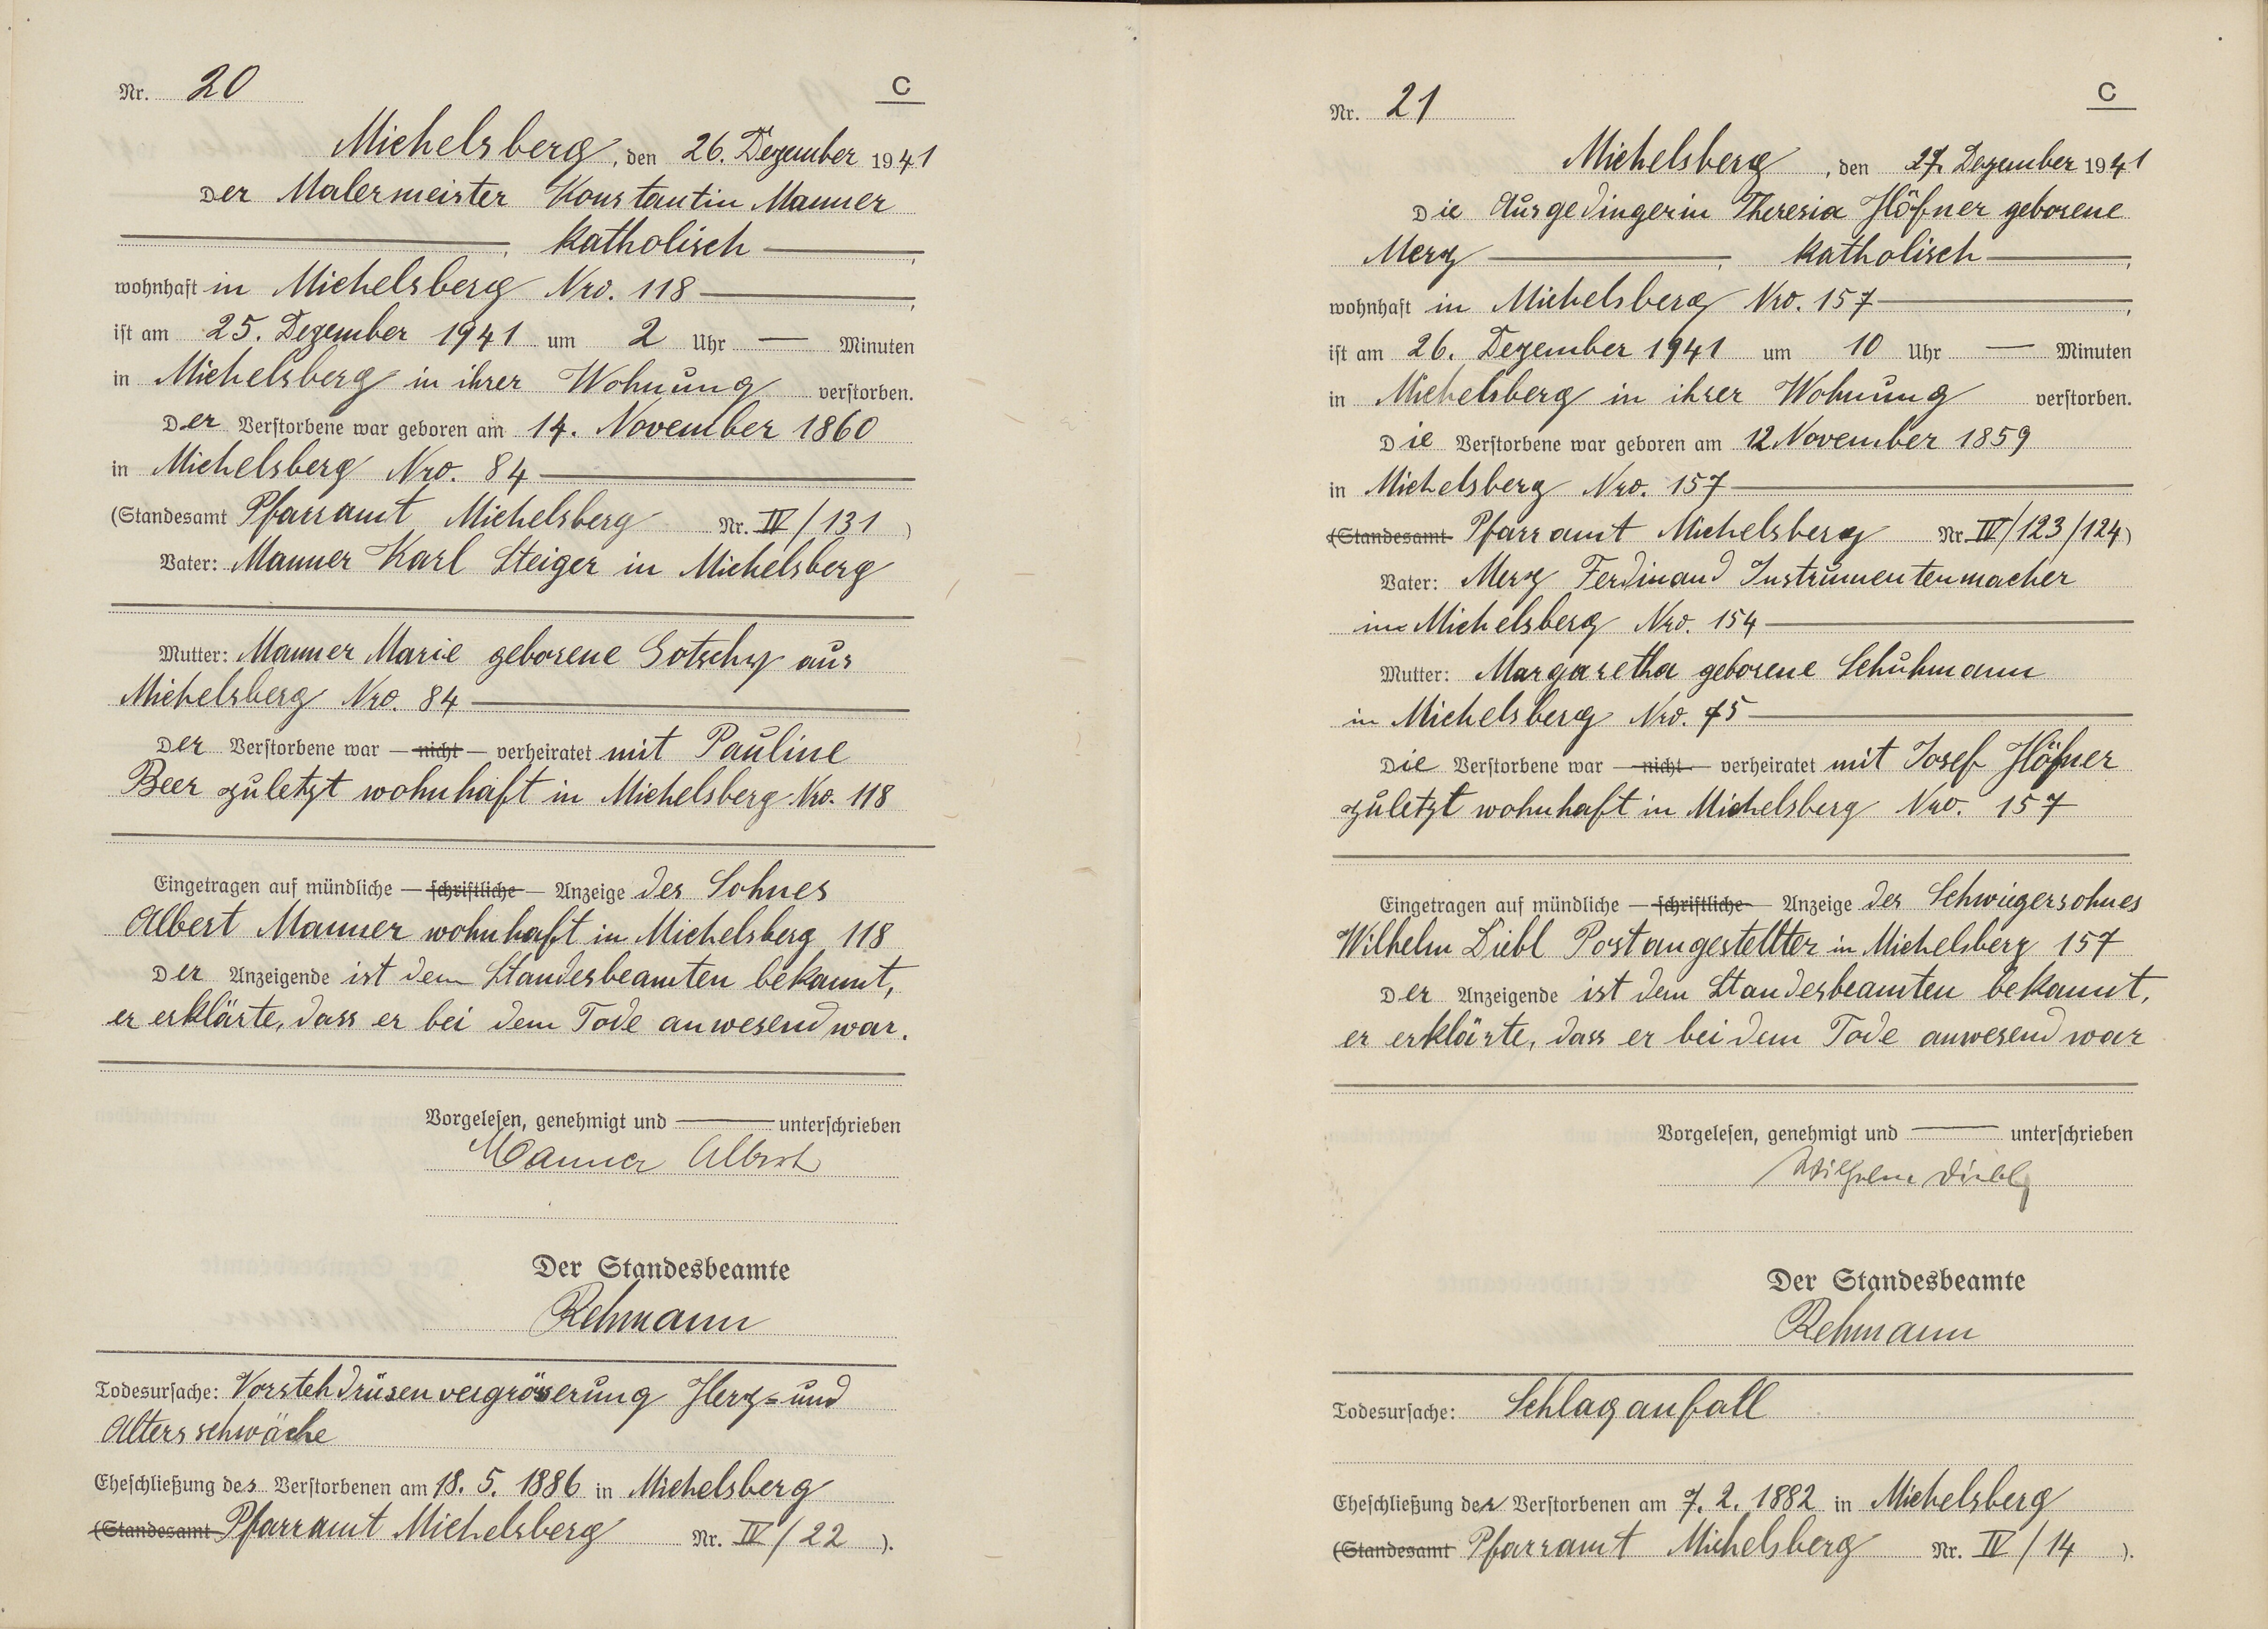 Nr. 20
C
Michelsberg, den 26. Dezember 1941
Der Malermeister Konstantin Manner
, katholisch ,
wohnhaft in Michelsberg Nro. 118 ,
ist am 25. Dezember 1941 um 2 Uhr — Minuten
in Michelsberg in ihrer Wohnung verstorben.
Der Verstorbene war geboren am 14. November 1860
in Michelsberg Nro. 84
(Standesamt Pfarramt Michelsberg Nr. IV/131 )
Vater: Manner Karl Steiger in Michelsberg
Mutter: Manner Marie geborene Gotschy aus
Michelsberg Nro. 84
Der Verstorbene war — nicht — verheiratet mit Pauline
Beer zuletzt wohnhaft in Michelsberg Nro. 118
Eingetragen auf mündliche — schriftliche — Anzeige des Sohnes
Albert Manner wohnhaft in Michelsberg 118
Der Anzeigende ist dem Standesbeamten bekannt,
er erklärte, dass er bei dem Tode anwesend war.
Vorgelesen, genehmigt und — unterschrieben
Manner Albert
Der Standesbeamte
Rehmann
Todesursache: Vorstehdrüsenvergrösserung Herz= und
Altersschwäche
Eheschließung des Verstorbenen am 18. 5. 1886 in Michelsberg
(Standesamt Pfarramt Michelsberg Nr. IV/22 ).
Nr. 21
C
Michelsberg, den 27. Dezember 1941
Die Ausgedingerin Theresia Höfner geborene
Merz , katholisch ,
wohnhaft in Michelsberg Nro. 157 ,
ist am 26. Dezember 1941 um 10 Uhr — Minuten
in Michelsberg in ihrer Wohnung verstorben.
Die Verstorbene war geboren am 12 November 1859
in Michelsberg Nro. 157
(Standesamt Pfarramt Michelsberg Nr. IV/123/124)
Vater: Merz Ferdinand Instrumentenmacher
in Michelsberg Nro. 154
Mutter: Margaretha geborene Schuhmann
in Michelsberg Nro. 75
Die Verstorbene war — nicht — verheiratet mit Josef Höfner
zuletzt wohnhaft in Michelsberg Nro. 157
Eingetragen auf mündliche — schriftliche — Anzeige des Schwiegersohnes
Wilhelm Diebl Postangestellter in Michelsberg 157
Der Anzeigende ist dem Standesbeamten bekannt,
er erklärte, dass er bei dem Tode anwesend war
Vorgelesen, genehmigt und — unterschrieben
Wilhelm Diebl
Der Standesbeamte
Rehmann
Todesursache: Schlaganfall
Eheschließung der Verstorbenen am 7. 2. 1882 in Michelsberg
(Standesamt Pfarramt Michelsberg Nr. IV/14 ).